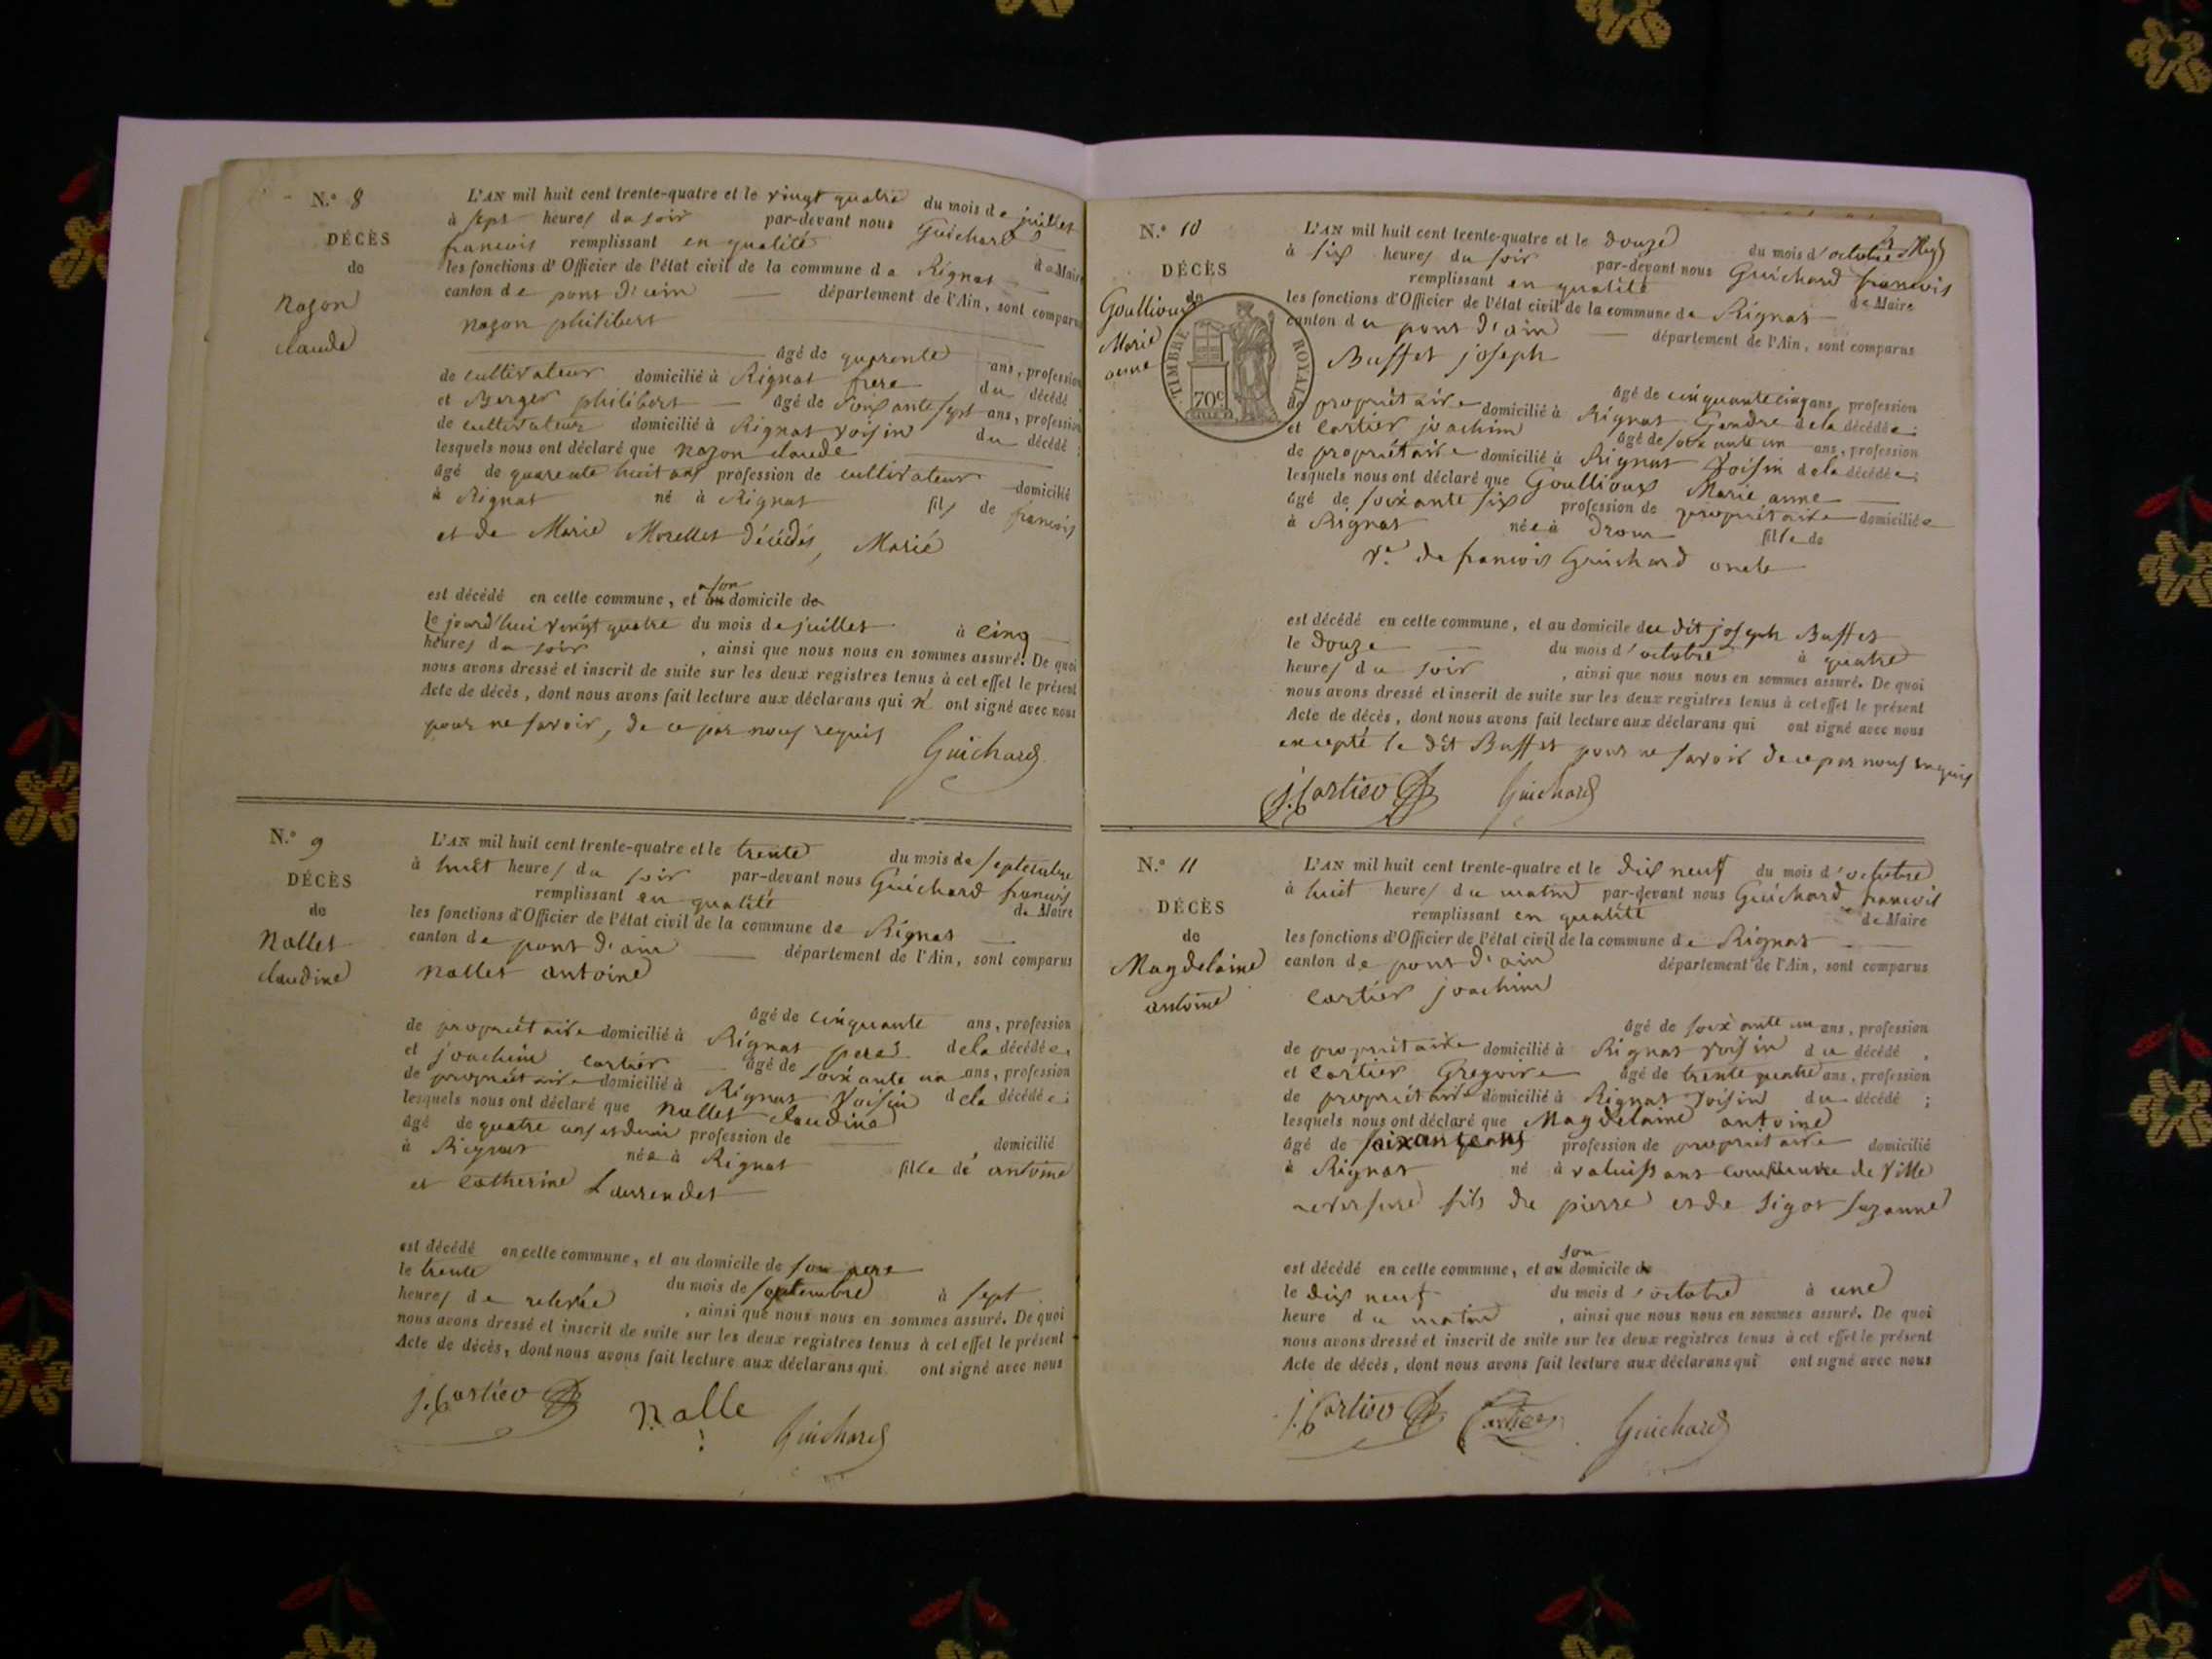 N.º 8
DÉCÈS
de
nazon
claude
L'AN mil huit cent trente-quatre et le vingt quatre du mois de juillet
à sept heures du soir par-devant nous Guichard
francois remplissant en qualité de Maire
les fonctions d'Officier de l'état civil de la commune de Rignat
canton de pont d'ain département de l'Ain, sont comparus
nazon philibert
âgé de quarente ans, profession
de cultivateur domicilié à Rignat frere du décédé
et Berger philibert âgé de Soixante sept ans, profession
de cultivateur domicilié à Rignat voisin du décédé ;
lesquels nous ont déclaré que nazon claude
âgé de quarente huit ans profession de cultivateur domicilié
à Rignat né à Rignat fils de francois
et de Marie Morellet décédés, Marié
est décédé en cette commune, et au a son domicile de
le jourd'hui vingt quatre du mois de juillet à cinq
heures du soir, ainsi que nous nous en sommes assuré. De quoi
nous avons dressé et inscrit de suite sur les deux registres tenus à cet effet le présent
Acte de décès, dont nous avons fait lecture aux déclarans qui n' ont signé avec nous
pour ne savoir, de ce par nous requis
Guichard
N.º 9
DÉCÈS
de
Nallet
claudine
L'AN mil huit cent trente-quatre et le trente du mois de septembre
à huit heures du soir par-devant nous Guichard francois
remplissant en qualité de Maire
les fonctions d'Officier de l'état civil de la commune de Rignat
canton de pont d'ain département de l'Ain, sont comparus
nallet antoine
âgé de cinquante ans, profession
de propriétaire domicilié à Rignat pere de la décédée,
et joachim cartier âgé de soixante un ans, profession
de propriétaire domicilié à Rignat voisin de la décédée ;
lesquels nous ont déclaré que nallet claudine
âgé de quatre ans et demi profession de domicilié
à Rignat née à Rignat fille de antoine
et catherine Laurendet
est décédé en cette commune, et au domicile de son pere
le trente du mois de septembre à sept
heures de relevée, ainsi que nous nous en sommes assuré. De quoi
nous avons dressé et inscrit de suite sur les deux registres tenus à cet effet le présent
Acte de décès, dont nous avons fait lecture aux déclarans qui ont signé avec nous
j. Cartier nalle Guichard
N.º 10
DÉCÈS
de
Goullioux
Marie
anne
TIMBRE ROYAL
70c
L'AN mil huit cent trente-quatre et le douze du mois d'octobre
à six heures du soir par-devant nous Guichard francois
remplissant en qualité de Maire
les fonctions d'Officier de l'état civil de la commune de Rignat
canton du pont d'ain département de l'Ain, sont comparus
Buffet joseph
âgé de cinquante cinq ans, profession
de propriétaire domicilié à Rignat Gendre de la décédée ;
et cartier joachim âgé de soixante un ans, profession
de propriétaire domicilié à Rignat voisin de la décédée ;
lesquels nous ont déclaré que Goullioux Marie anne
âgé de soixante six profession de propriétaire domiciliée
à Rignat née à Drom fille de
Ve. de francois Guichard oncle
est décédé en cette commune, et au domicile du dit joseph Buffet
le douze du mois d'octobre à quatre
heures du soir, ainsi que nous nous en sommes assuré. De quoi
nous avons dressé et inscrit de suite sur les deux registres tenus à cet effet le présent
Acte de décès, dont nous avons fait lecture aux déclarans qui ont signé avec nous
excepté le dit Buffet pour ne savoir de ce par nous requis
j. Cartier Guichard
N.º 11
DÉCÈS
de
Magdelaine
antoine
L'AN mil huit cent trente-quatre et le dix neuf du mois d'octobre
à huit heures du matin par-devant nous Guichard francois
remplissant en qualité de Maire
les fonctions d'Officier de l'état civil de la commune de Rignat
canton de pont d'ain département de l'Ain, sont comparus
cartier joachim
âgé de soixante un ans, profession
de propriétaire domicilié à Rignat voisin du décédé,
et cartier Gregoire âgé de trente quatre ans, profession
de propriétaire domicilié à Rignat voisin du décédé ;
lesquels nous ont déclaré que Magdelaine antoine
âgé de soixante ans profession de propriétaire domicilié
à Rignat né à valuissant commune de Ville
reversure fils de pierre et de Sigot suzanne
est décédé en cette commune, et au son domicile de
le dix neuf du mois d'octobre à une
heure du matin, ainsi que nous nous en sommes assuré. De quoi
nous avons dressé et inscrit de suite sur les deux registres tenus à cet effet le présent
Acte de décès, dont nous avons fait lecture aux déclarans qui ont signé avec nous
j. Cartier Cartier Guichard